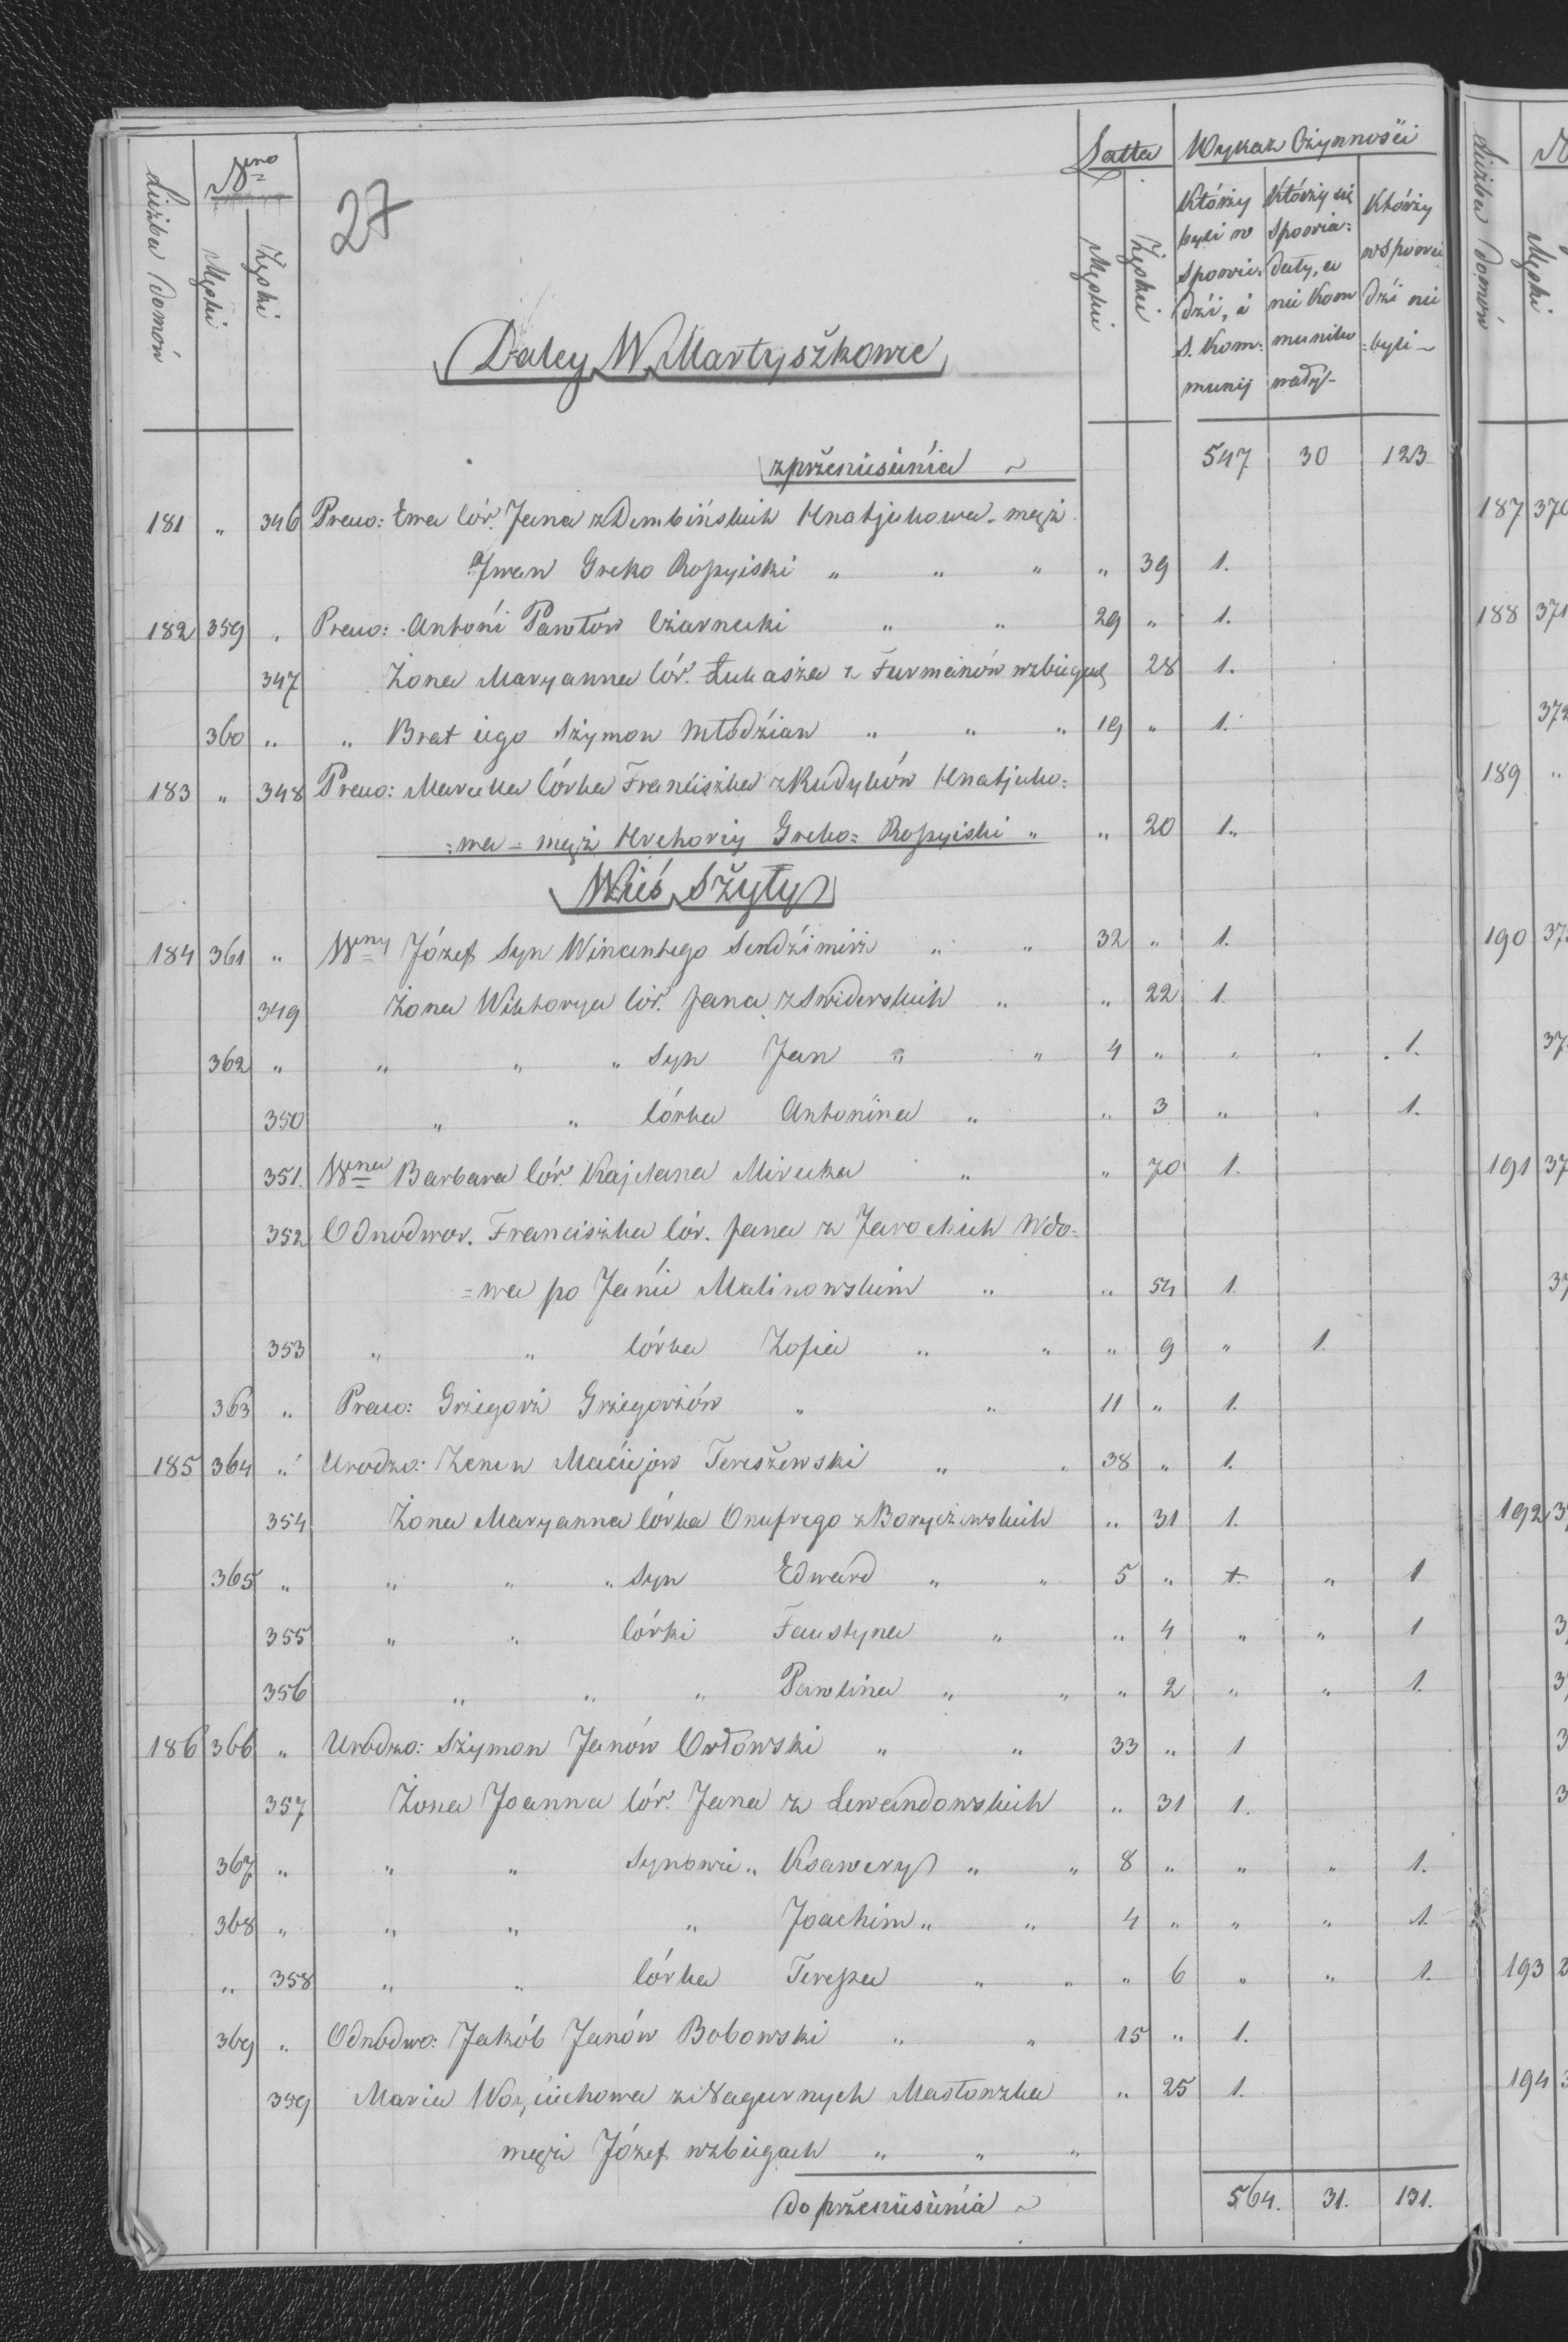 27
Liczba Domów | Nro | Męski | Żęski | Latta | Męskie | Żęskie | Wykaz Czynnośći
Którzy byli w spowie: dźi, i S. Kom: munij
Którzy się spowia: dały, a nie Kom munikowały -
Którzy w spowie dźi nie =byli -
Daley W Martyszkowce
z przeniesienia ~ 547 30 123
181 " 346 Praco: Ewa Cór. Jana z Dembińskich Hnatjukowa - mąż
Jwan Greko Rossyiski " " " " 39 1.
182 359 " Praco: Antoni Pawłow Czarnecki " " 29 " 1.
347 Żona Maryanna Cór. Łukasza z Furmanów w zbiegach 28 1.
360 " " Brat iego Szymon Młodzian " " " 19 " 1.
183 " 348 Praco: Marcella Córka Franciszka z Rudyków Hnatjuko=
=wa - mąż Hrehorij Greko= Rossyiski " " 20 1.
Wieś Szyły
184 361 " Wny Józef Syn Wincentego Sendźimirz " " 32 " 1.
349 Żona Wiktorya Cór. Jana z Swiderskich " " 22 1.
362 " " " " Syn Jan " " 4 " " " 1.
350 " " Córka Antonina " " 3 " " 1.
351. Wna Barbara Cór. Kajetana Mirecka " " 70 1.
352 Odnodwor. Franciszka Cór. Jana z Jarockich Wdo=
=wa po Janie Malinowskim " " 54 1.
353 " " Córka Zofia " " " 9 " 1.
363 " Praco: Grzegorz Grzegorzów " " 11 " 1.
185 364 " Urodzo: Zenon Maciejow Tereszewski " " 38 " 1.
354 Żona Maryanna Córka Onufrego z Boryczewskich " 31 1.
365 " " " " Syn Edward " " 5 " " 1
355 " " Córki Faustyna " " 4 " " 1
356 " " " Pawlina " " " 2 " " 1.
186 366 " Urodzo: Szymon Janów Orłowski " " 33 " 1
357 Żona Joanna Cór. Jana z Lewandowskich " 31 1.
367 " " " Synowie " Ksawery " " 8 " " " 1.
368 " " " " Joachim " " 4 " " " 1.
" 358 " " Córka Teressa " " " 6 " " 1.
369 " Odnodwo: Jakób Janów Bobowski " " 15 " 1.
359 Maria Woyciechowa z Zagurnych Masłowska " 25 1.
mąż Józef w zbiegach " " "
do przeniesienia ~ 564. 31. 131.
Liczba Domów | Męski
187 370
188 371
372
189 "
190
191
192
193
194